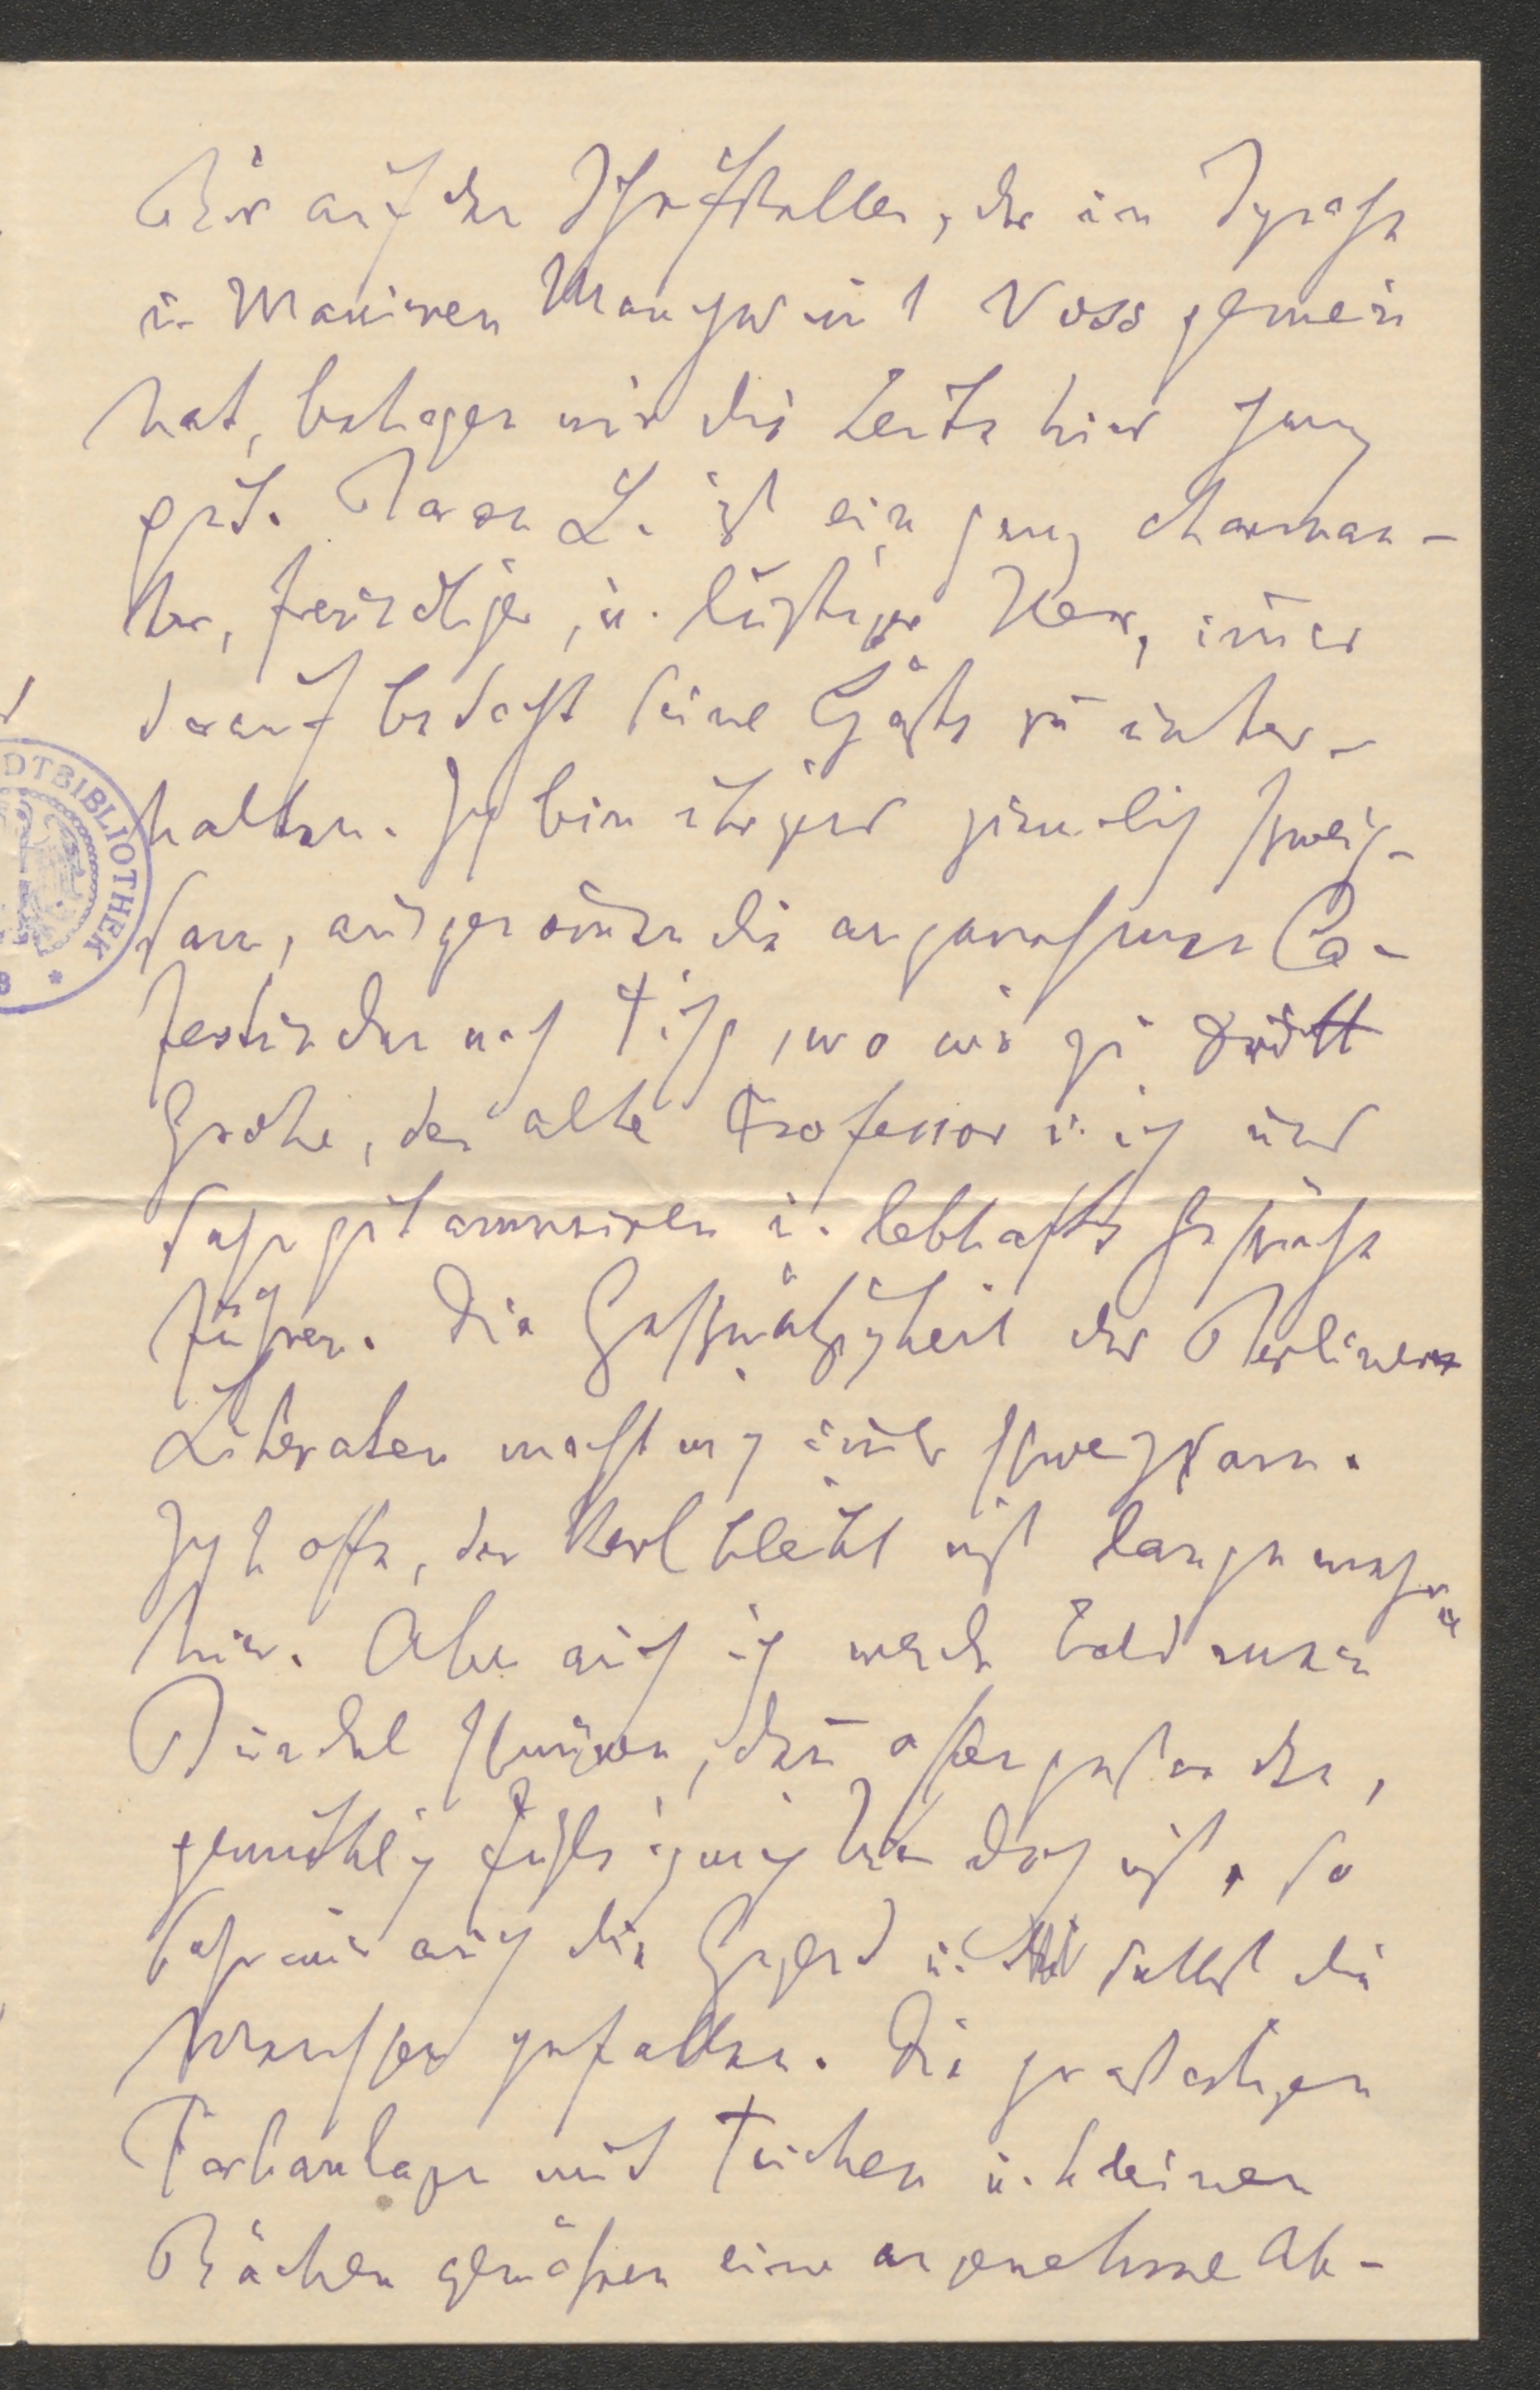 Bis auf den Schriftsteller, der in Sprache
u. Manieren Manches mit Voss gemein
hat, behagen mir die Leute hier ganz
gut. Baron L. ist ein ganz charman-
ter, freundlicher, u. lustiger Herr, immer
darauf bedacht seine Gäste zu unter-
halten. Ich bin übrigens ziemlich schweig-
sam, ausgenommen die angenehmen Ca-
festunden nach Tisch, wo wir zu dritt
Grohe, der alte Professor u. ich uns
sehr gut amusiren u. lebhafte Gespräche
führen. Die Geschwätzigkeit des Berliner
Literaten macht mich immer schweigsam.
Ich hoffe, der Kerl bleibt nicht lange mehr
hier. Aber auch ich werde bald mein
Bündel schnüren, denn offen gestanden,
gemüthlich fühle ich mich hier doch nicht, so
sehr mir auch die Gegend u. selbst die
Menschen gefallen. Die großartigen
Parkanlagen mit Teichen u. kleinen
Bächen gewähren eine angenehme Ab-
DTBIBLIOTHEK